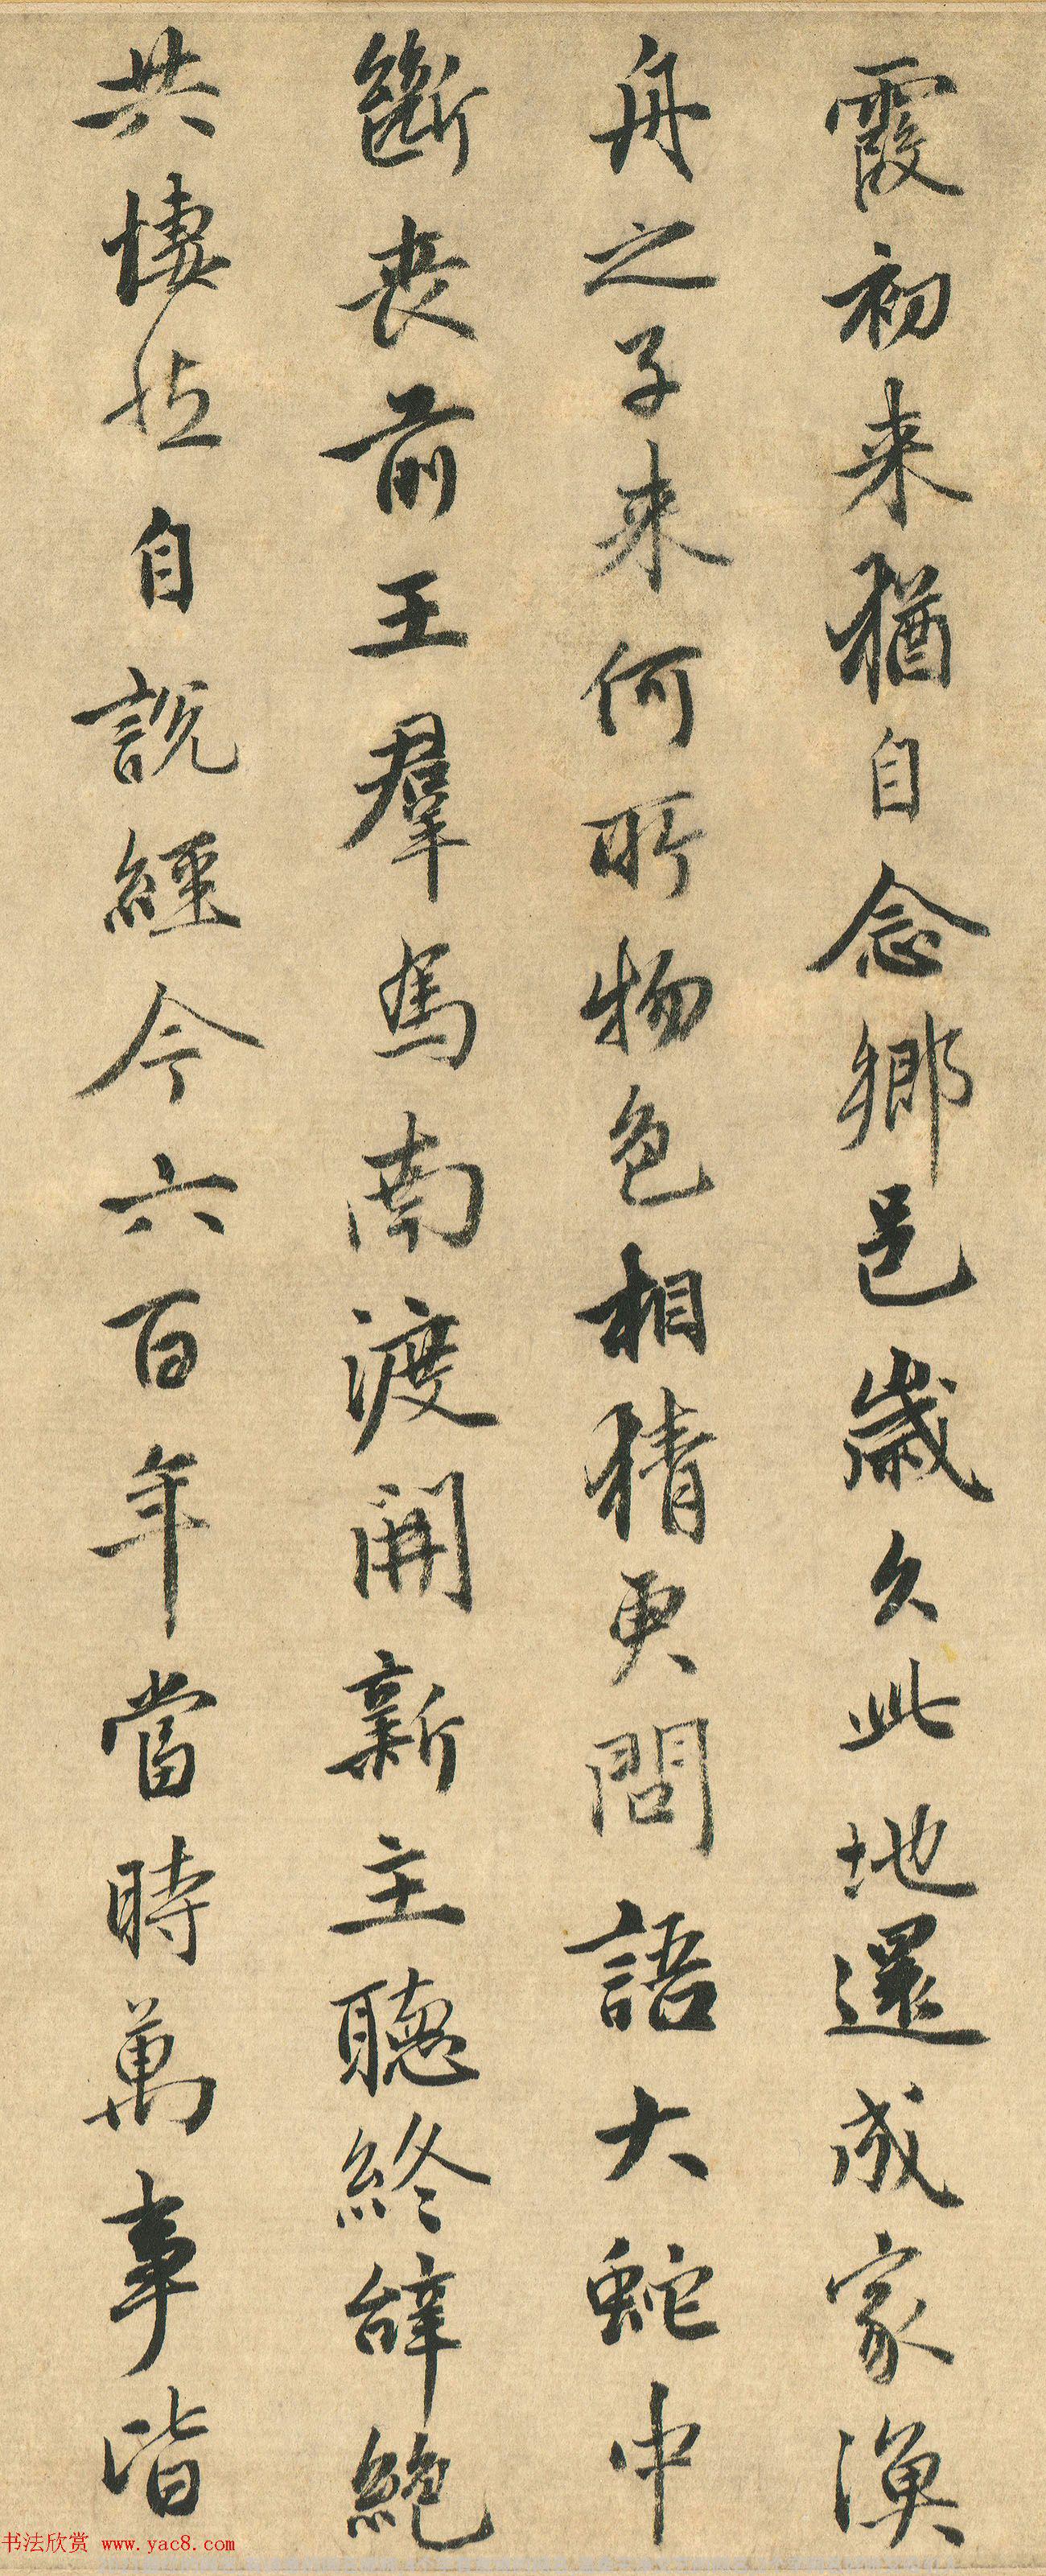 霞初来猶自念鄉邑歲久此地還成家漁
舟之子来何所物色相猜更問語大蛇中
斷喪前王羣馬南渡開新主聽終辭絶
共悽然自説經今六百年當時萬事皆
书法欣赏 www.yac8.com